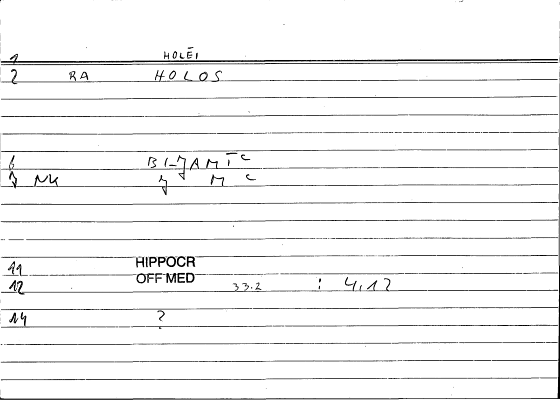 1 HOLĒI
2 RA HOLOS
6
7 NK J M C
11 HIPPOCR
12 OFF MED 33.2 : 4,12
14 ?